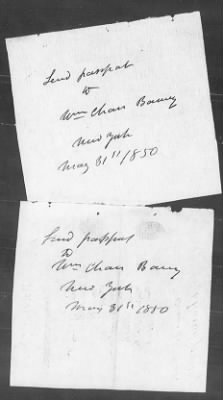 Send passport
to
Wm Chas Barney
New York
May 31st 1850
Send passport
to
Wm Chas Barney
New York
May 31st 1850